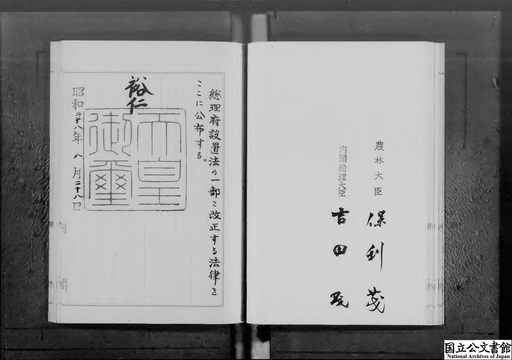 総理府設置法の一部を改正する法律を
ここに公布する。
裕仁
天皇
御璽
昭和二十八年八月二十八日
農林大臣
保利茂
内閣総理大臣
吉田茂
国立公文書館
National Archives of Japan